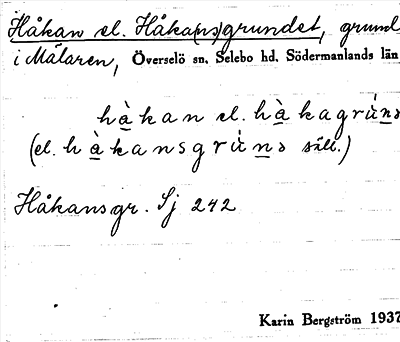 Håkan el. Håka(ns)grundet, grund
i Mälaren, Överselö sn, Selebo hd, Södermanlands län
hàkan el. hàkagrúns
(el. hàkansgrúns säll.)
Håkansgr. Sj 242
Karin Bergström 1937